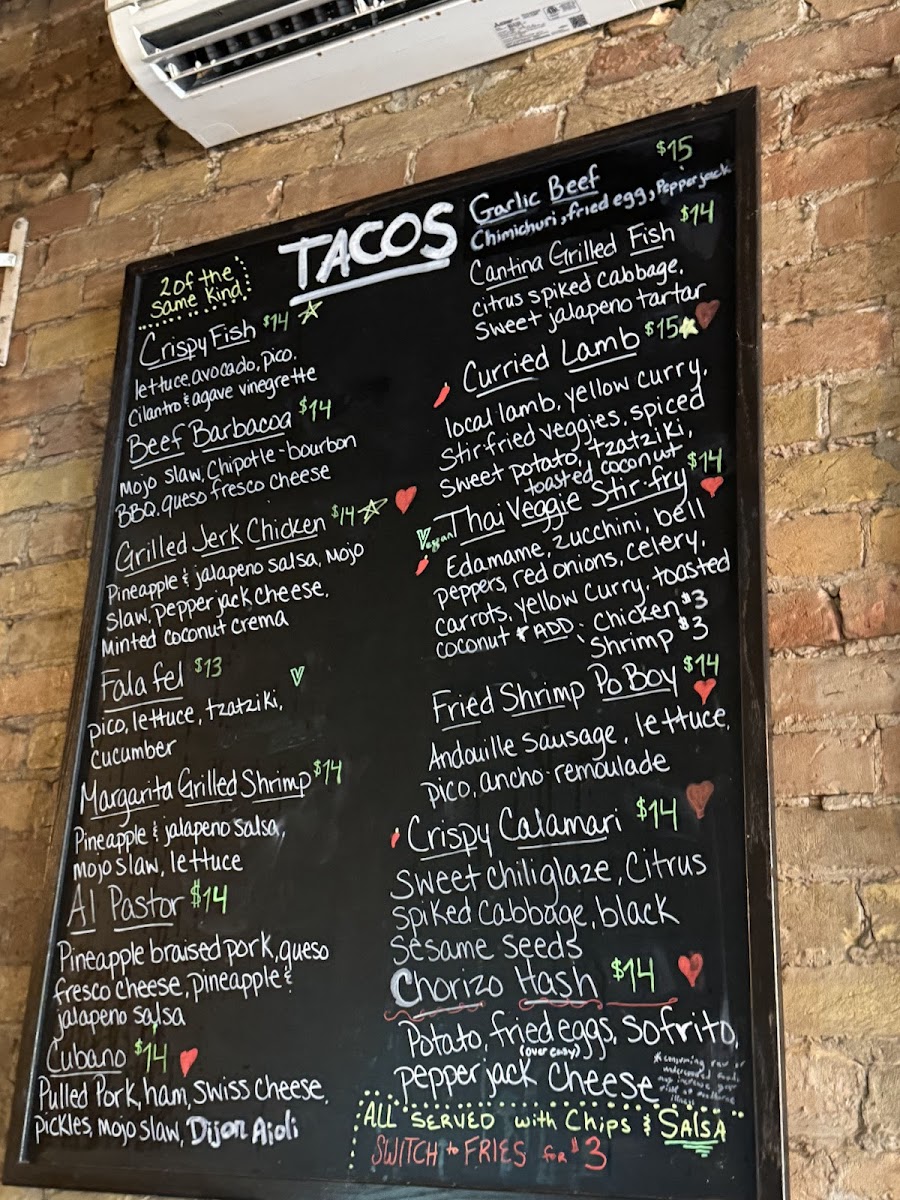 TACOS
2 of the
Same Kind
Crispy Fish $14
lettuce, avocado, pico.
Cilantro & agave vinegrette
Beef Barbacoa $14
Mojo slaw, Chipotle-bourbon
BBQ, queso fresco cheese
Grilled Jerk Chicken $14
Pineapple & jalapeno salsa, Mojo
Slaw, pepper jack cheese,
Minted coconut crema
Falafel $13
V
pico, lettuce, tzatziki,
cucumber
Margarita Grilled Shrimp $14
Pineapple & jalapeno salsa,
mojo slaw, lettuce
Al Pastor $14
Pineapple braised pork, queso
fresco cheese, pineapple &
jalapeno salsa
Cubano $14
Pulled Pork, ham, Swiss Cheese,
pickles, mojo slaw, Dijon Aioli
Garlic Beef $15
Chimichuri, fried egg, Pepper jack
Cantina Grilled Fish $14
citrus spiked cabbage,
Sweet jalapeno tartar
Curried Lamb $15
local lamb, yellow curry,
Stir-fried veggies, spiced
Sweet potato, tzatziki,
toasted coconut
Vegan! Thai Veggie Stir-fry $14
Edamame, zucchini, bell
peppers, red onions, celery,
carrots, yellow curry, toasted
coconut * ADD: Chicken $3
Shrimp $3
Fried Shrimp Po Boy $14
Andouille Sausage, lettuce,
pico, ancho-remoulade
Crispy Calamari $14
Sweet chili glaze, Citrus
Spiked Cabbage, black
Sesame Seeds
Chorizo Hash $14
Potato, fried eggs, sofrito,
(over easy)
pepper jack cheese
*consuming raw or
undercooked foods
may increase your
risk of
illness
ALL SERVED with Chips & Salsa
SWITCH to FRIES for $3